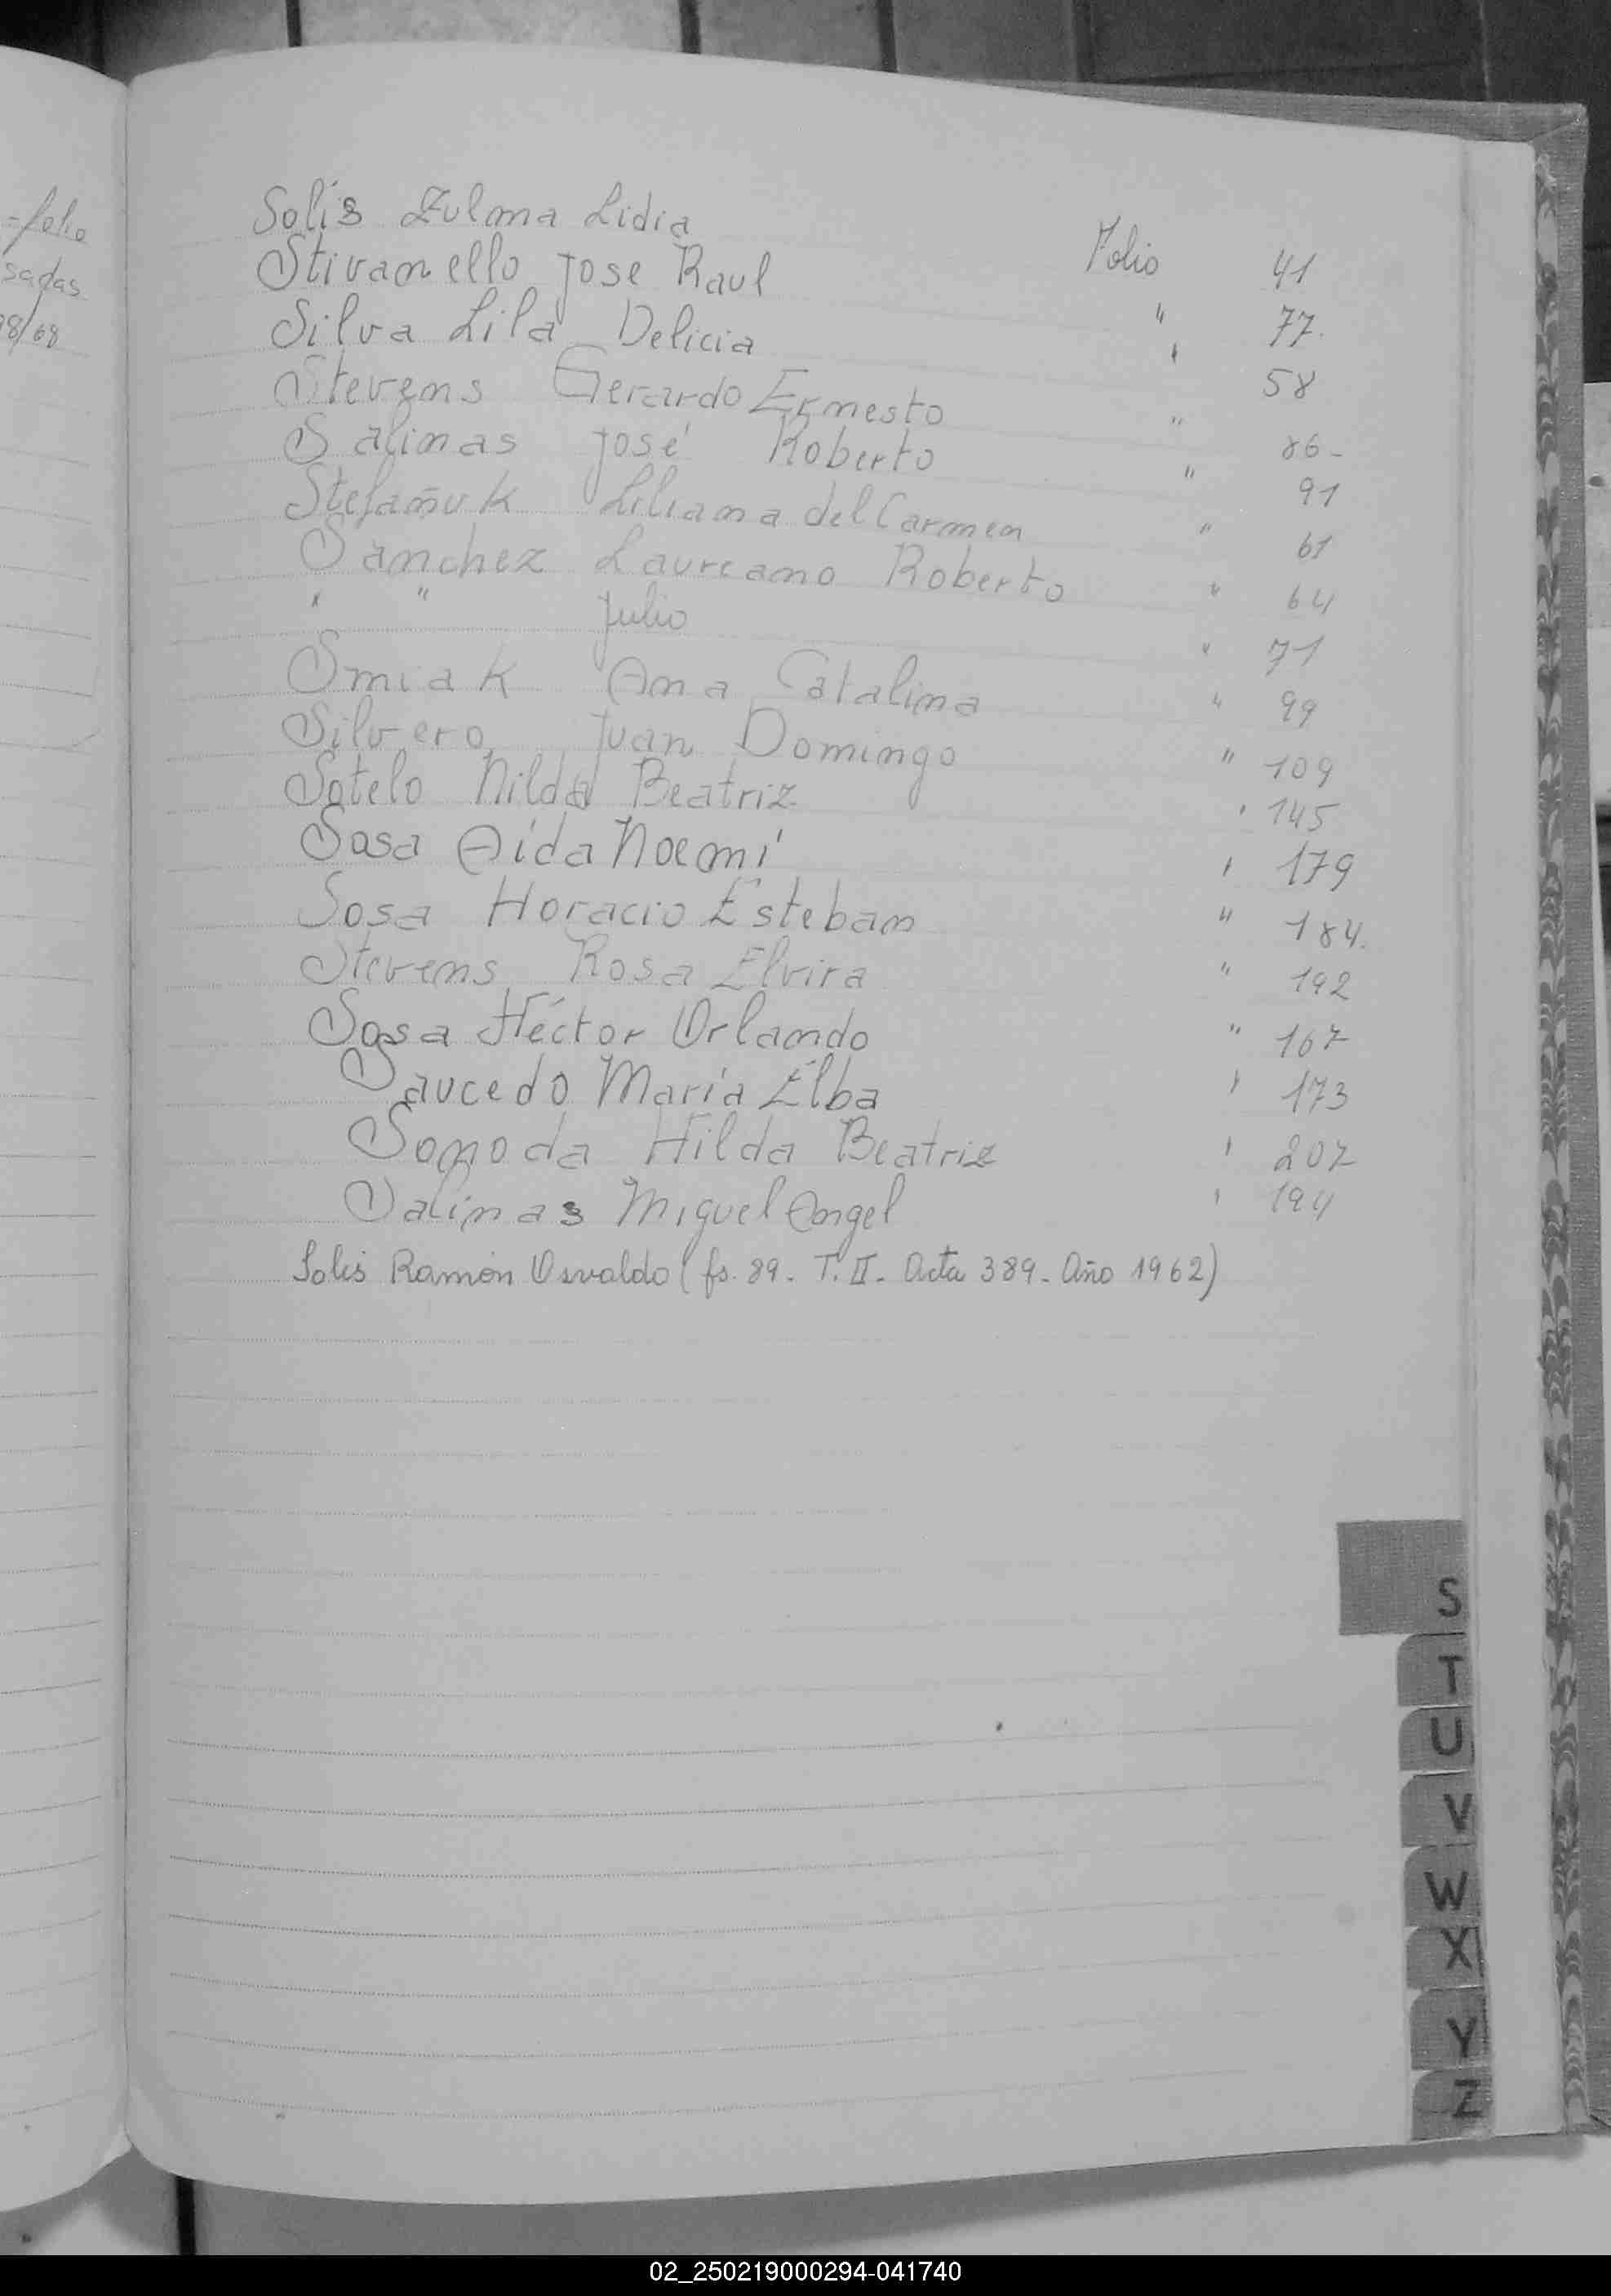 =folio
sadas
98/68
Solis Zulma Lidia Folio 41
Stivanello Jose Raul " 77.
Silva Lila Delicia " 58
Stevens Gerardo Ernesto " 86-
Salinas José Roberto " 91
Stefañuk Liliana del Carmen " 61
Sánchez Laureano Roberto " 64
" " Julio " 71
Smiak Ana Catalina " 99
Silvero Juan Domingo " 109
Sotelo Nilda Beatriz " 145
Sosa Aída Noemí " 179
Sosa Horacio Esteban " 184.
Stevens Rosa Elvira " 192
Sosa Héctor Orlando " 167
Saucedo María Elba " 173
Sonoda Hilda Beatriz " 207
Salinas Miguel Angel " 194
Solis Ramón Osvaldo (fs. 89. T. II. Acta 389. Año 1962)
S
T
U
V
W
X
Y
Z
02_250219000294-041740